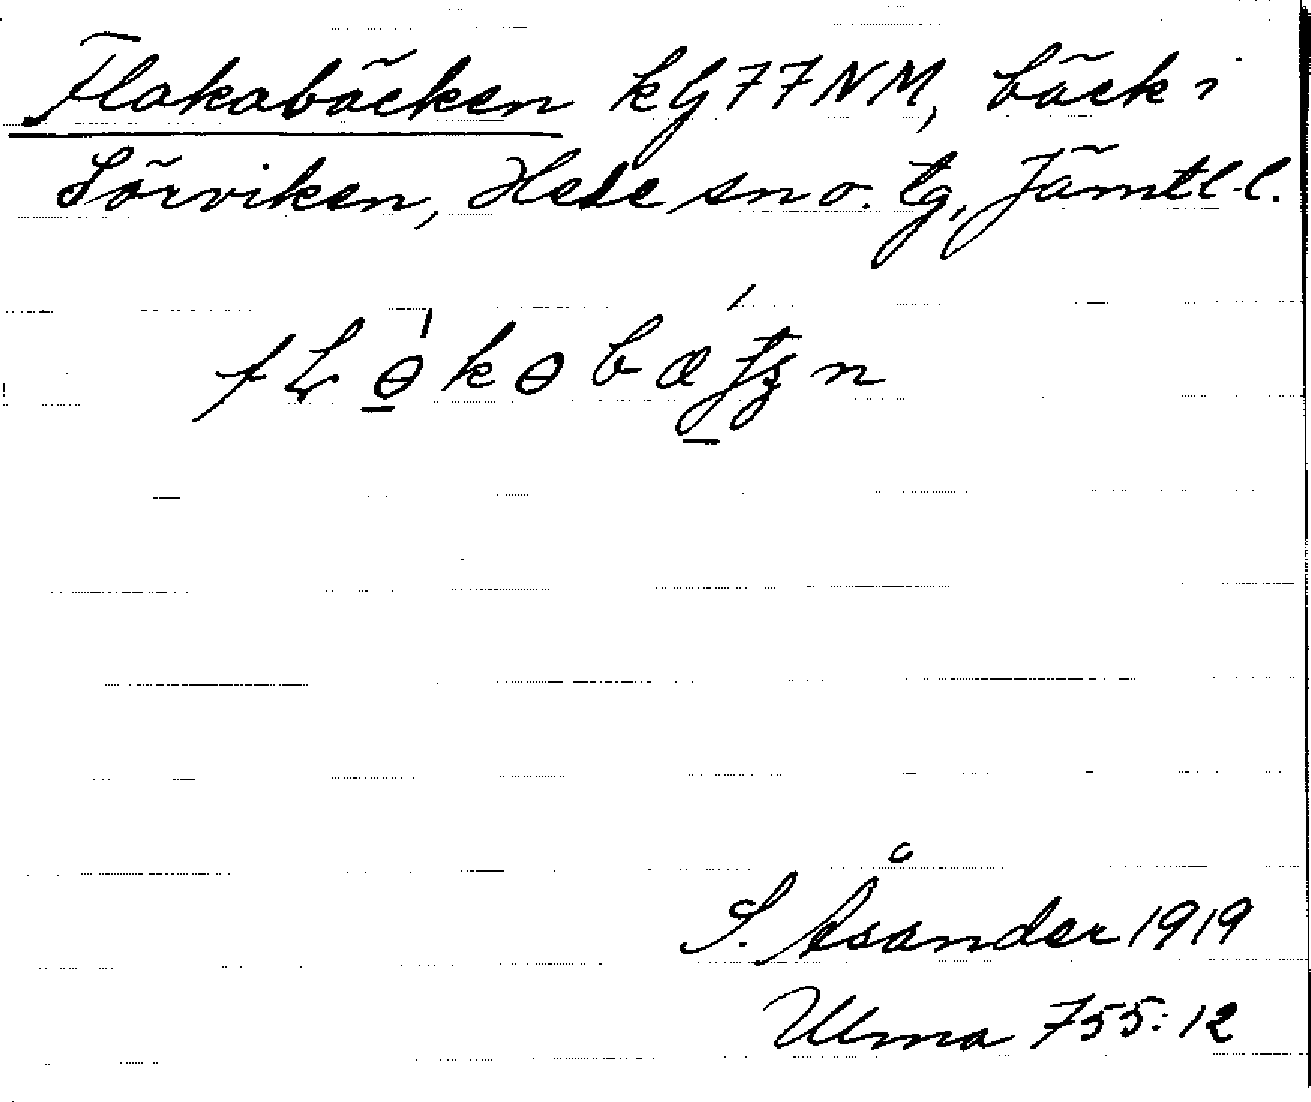 Flakabäcken kG77NM, bäck i
Sörviken, Hede sn o. tg, Jämtl. l.
S. Åsander 1919
Ulma 755:12